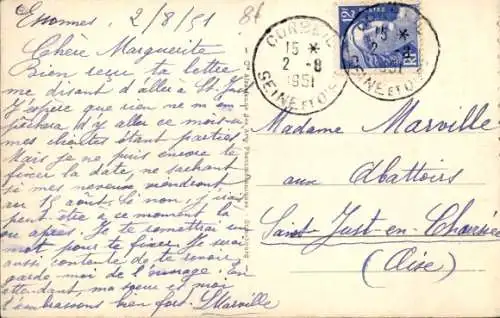 Essonnes 2/8/51
Chère Marguerite
Bien reçu ta lettre
me disant d'aller à St Just
J'espère que rien ne m'em
pêchera d'y aller ce mois-ci
mes étant parties.
Mais je ne puis encore te
fixer la date, ne sachant
si mes neveux viendront
au 15 août. Si non, j'irais
peut-être à ce moment là
ou après. Je te remettrai un
mot pour te fixer. Je suis
aussi contente de te revoir
garde moi de l'ouvrage. En
attendant, ma sœur et moi
t'embrassons bien fort. LMarville
CORBEIL
15 *
2 -8
1951
SEINE ET OISE
12F
15 *
2
1951
SEINE ET OISE
Madame Marville
aux Abattoirs
Saint-Just-en-Chaussée
(Oise)